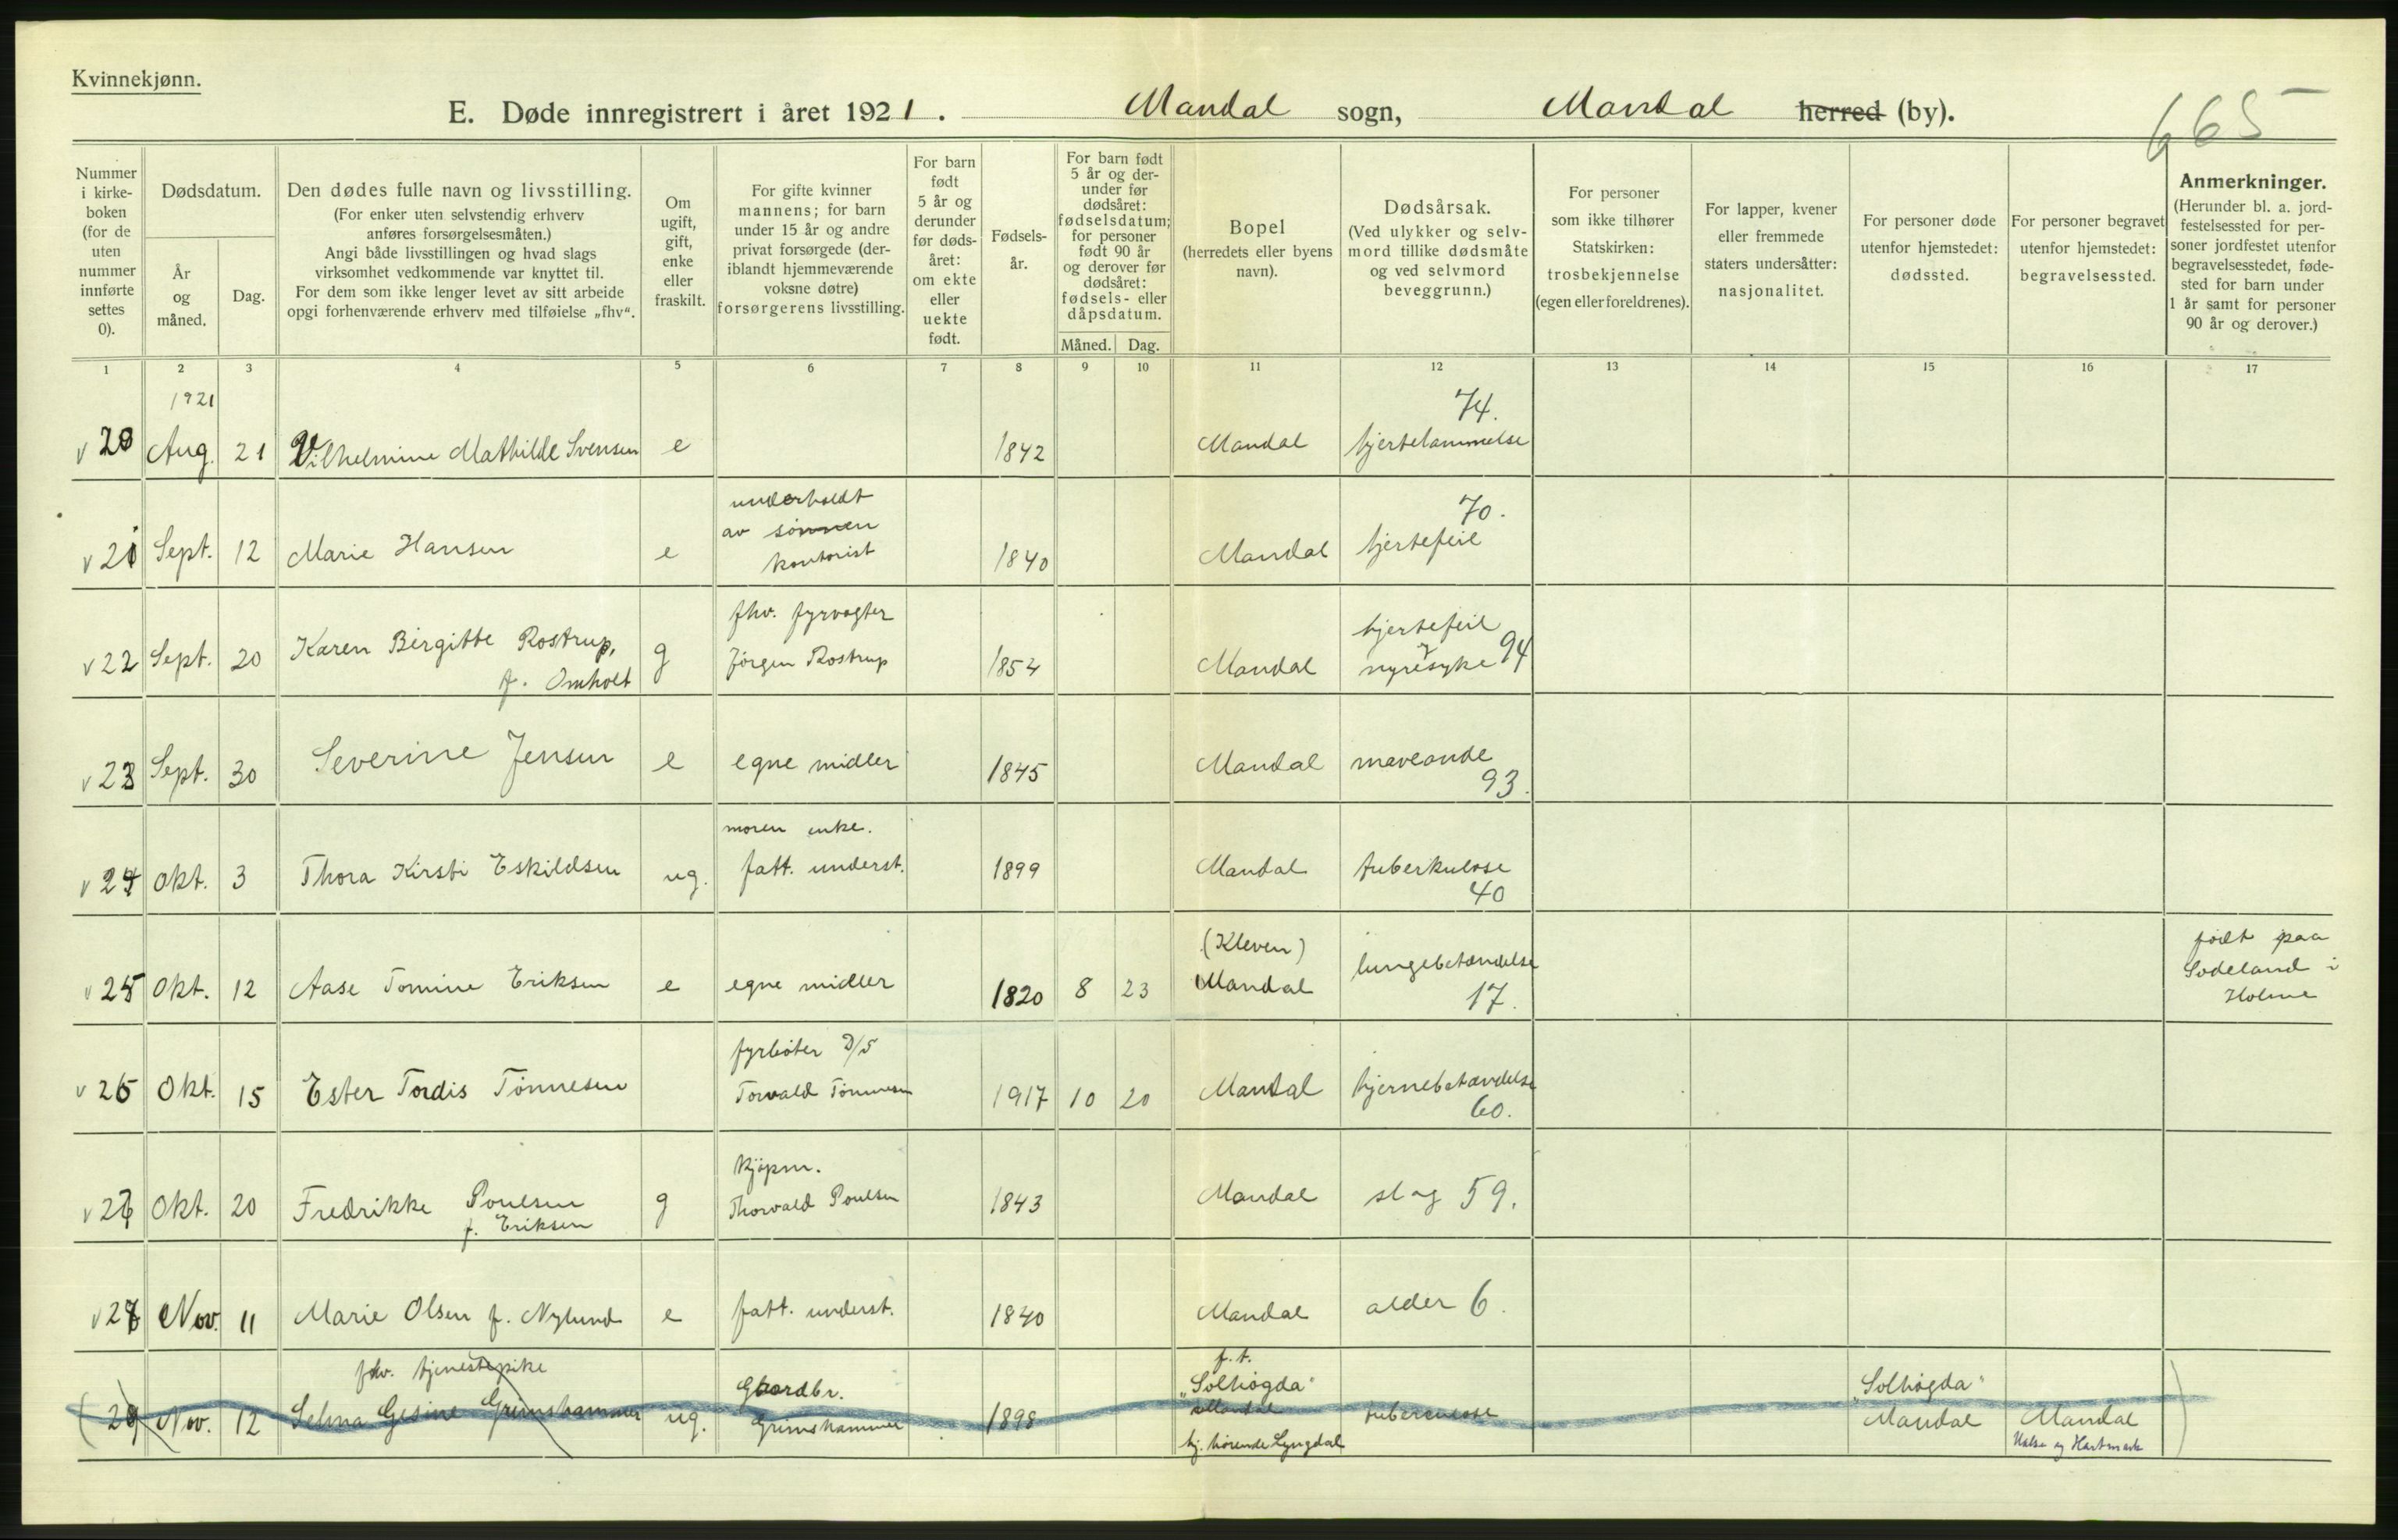 Kvinnekjønn.
E. Døde innregistrert i året 1921. Mandal sogn, Mandal herred (by).
665
Nummer i kirke-boken (for de uten nummer innførte settes 0).
Dødsdatum.
År og måned.
Dag.
Den dødes fulle navn og livsstilling.
(For enker uten selvstendig erhverv
anføres forsørgelsesmåten.)
Angi både livsstillingen og hvad slags
virksomhet vedkommende var knyttet til.
For dem som ikke lenger levet av sitt arbeide
opgi forhenværende erhverv med tilføielse „fhv“.
Om ugift, gift, enke eller fraskilt.
For gifte kvinner
mannens; for barn
under 15 år og andre
privat forsørgede (der-
iblandt hjemmeværende
voksne døtre)
forsørgerens livsstilling.
For barn født 5 år og derunder før døds-året: om ekte eller uekte født.
Fødsels-år.
For barn født
5 år og der-
under før
dødsåret:
fødselsdatum;
for personer
født 90 år
og derover før
dødsåret:
fødsels- eller
dåpsdatum.
Måned. Dag.
Bopel
(herredets eller byens
navn).
Dødsårsak.
(Ved ulykker og selv-
mord tillike dødsmåte
og ved selvmord
beveggrunn.)
For personer
som ikke tilhører
Statskirken:
trosbekjennelse
(egen eller foreldrenes).
For lapper, kvener
eller fremmede
staters undersåtter:
nasjonalitet.
For personer døde
utenfor hjemstedet:
dødssted.
For personer begravet
utenfor hjemstedet:
begravelsessted.
Anmerkninger.
(Herunder bl. a. jord-
festelsessted for per-
soner jordfestet utenfor
begravelsesstedet, føde-
sted for barn under
1 år samt for personer
90 år og derover.)
1 2 3 4 5 6 7 8 9 10 11 12 13 14 15 16 17
1921
74.
v 20 Aug. 21 Vilhelmine Mathilde Svensen e 1842 Mandal hjertelammelse
underholdt
av sønnen
kontorist
70.
v 21 Sept. 12 Marie Hansen e 1840 Mandal hjertefeil
fhv. fyrvogter
Jörgen Rostrup
hjertefeil
v 22 Sept. 20 Karen Birgitte Rostrup, g 1854 Mandal nyresyke 94
f. Omholt
v 23 Sept. 30 Severine Jensen e egne midler 1845 Mandal maveonde
93.
moren enke.
v 24 Okt. 3 Thora Kirsti Eskildsen ug. fatt. underst. 1899 Mandal tuberkulose
40
(Kleven)
v 25 Okt. 12 Aase Tomine Eriksen e egne midler 1820 8 23 Mandal lungebetændelse
17.
født paa
Sodeland i
Holme
fyrbøter D/S
v 26 Okt. 15 Ester Tordis Tönnesen Torvald Tönnesen 1917 10 20 Mandal hjernebetændelse
60.
kjøpm.
v 27 Okt. 20 Fredrikke Poulsen g Thorvald Poulsen 1843 Mandal slag 59.
f. Eriksen
v 28 Nov. 11 Marie Olsen f. Nylund e fatt. underst. 1840 Mandal alder 6.
fhv. tjenestepike
Gaardbr.
f. t.
"Solhøgda" "Solhøgda"
(29 Nov. 12 Selma Gesine Grimshammer ug. Grimshammer 1898 Mandal tuberculose Mandal Mandal )
hj. hørende Lyngdal
Halse og Hartmark